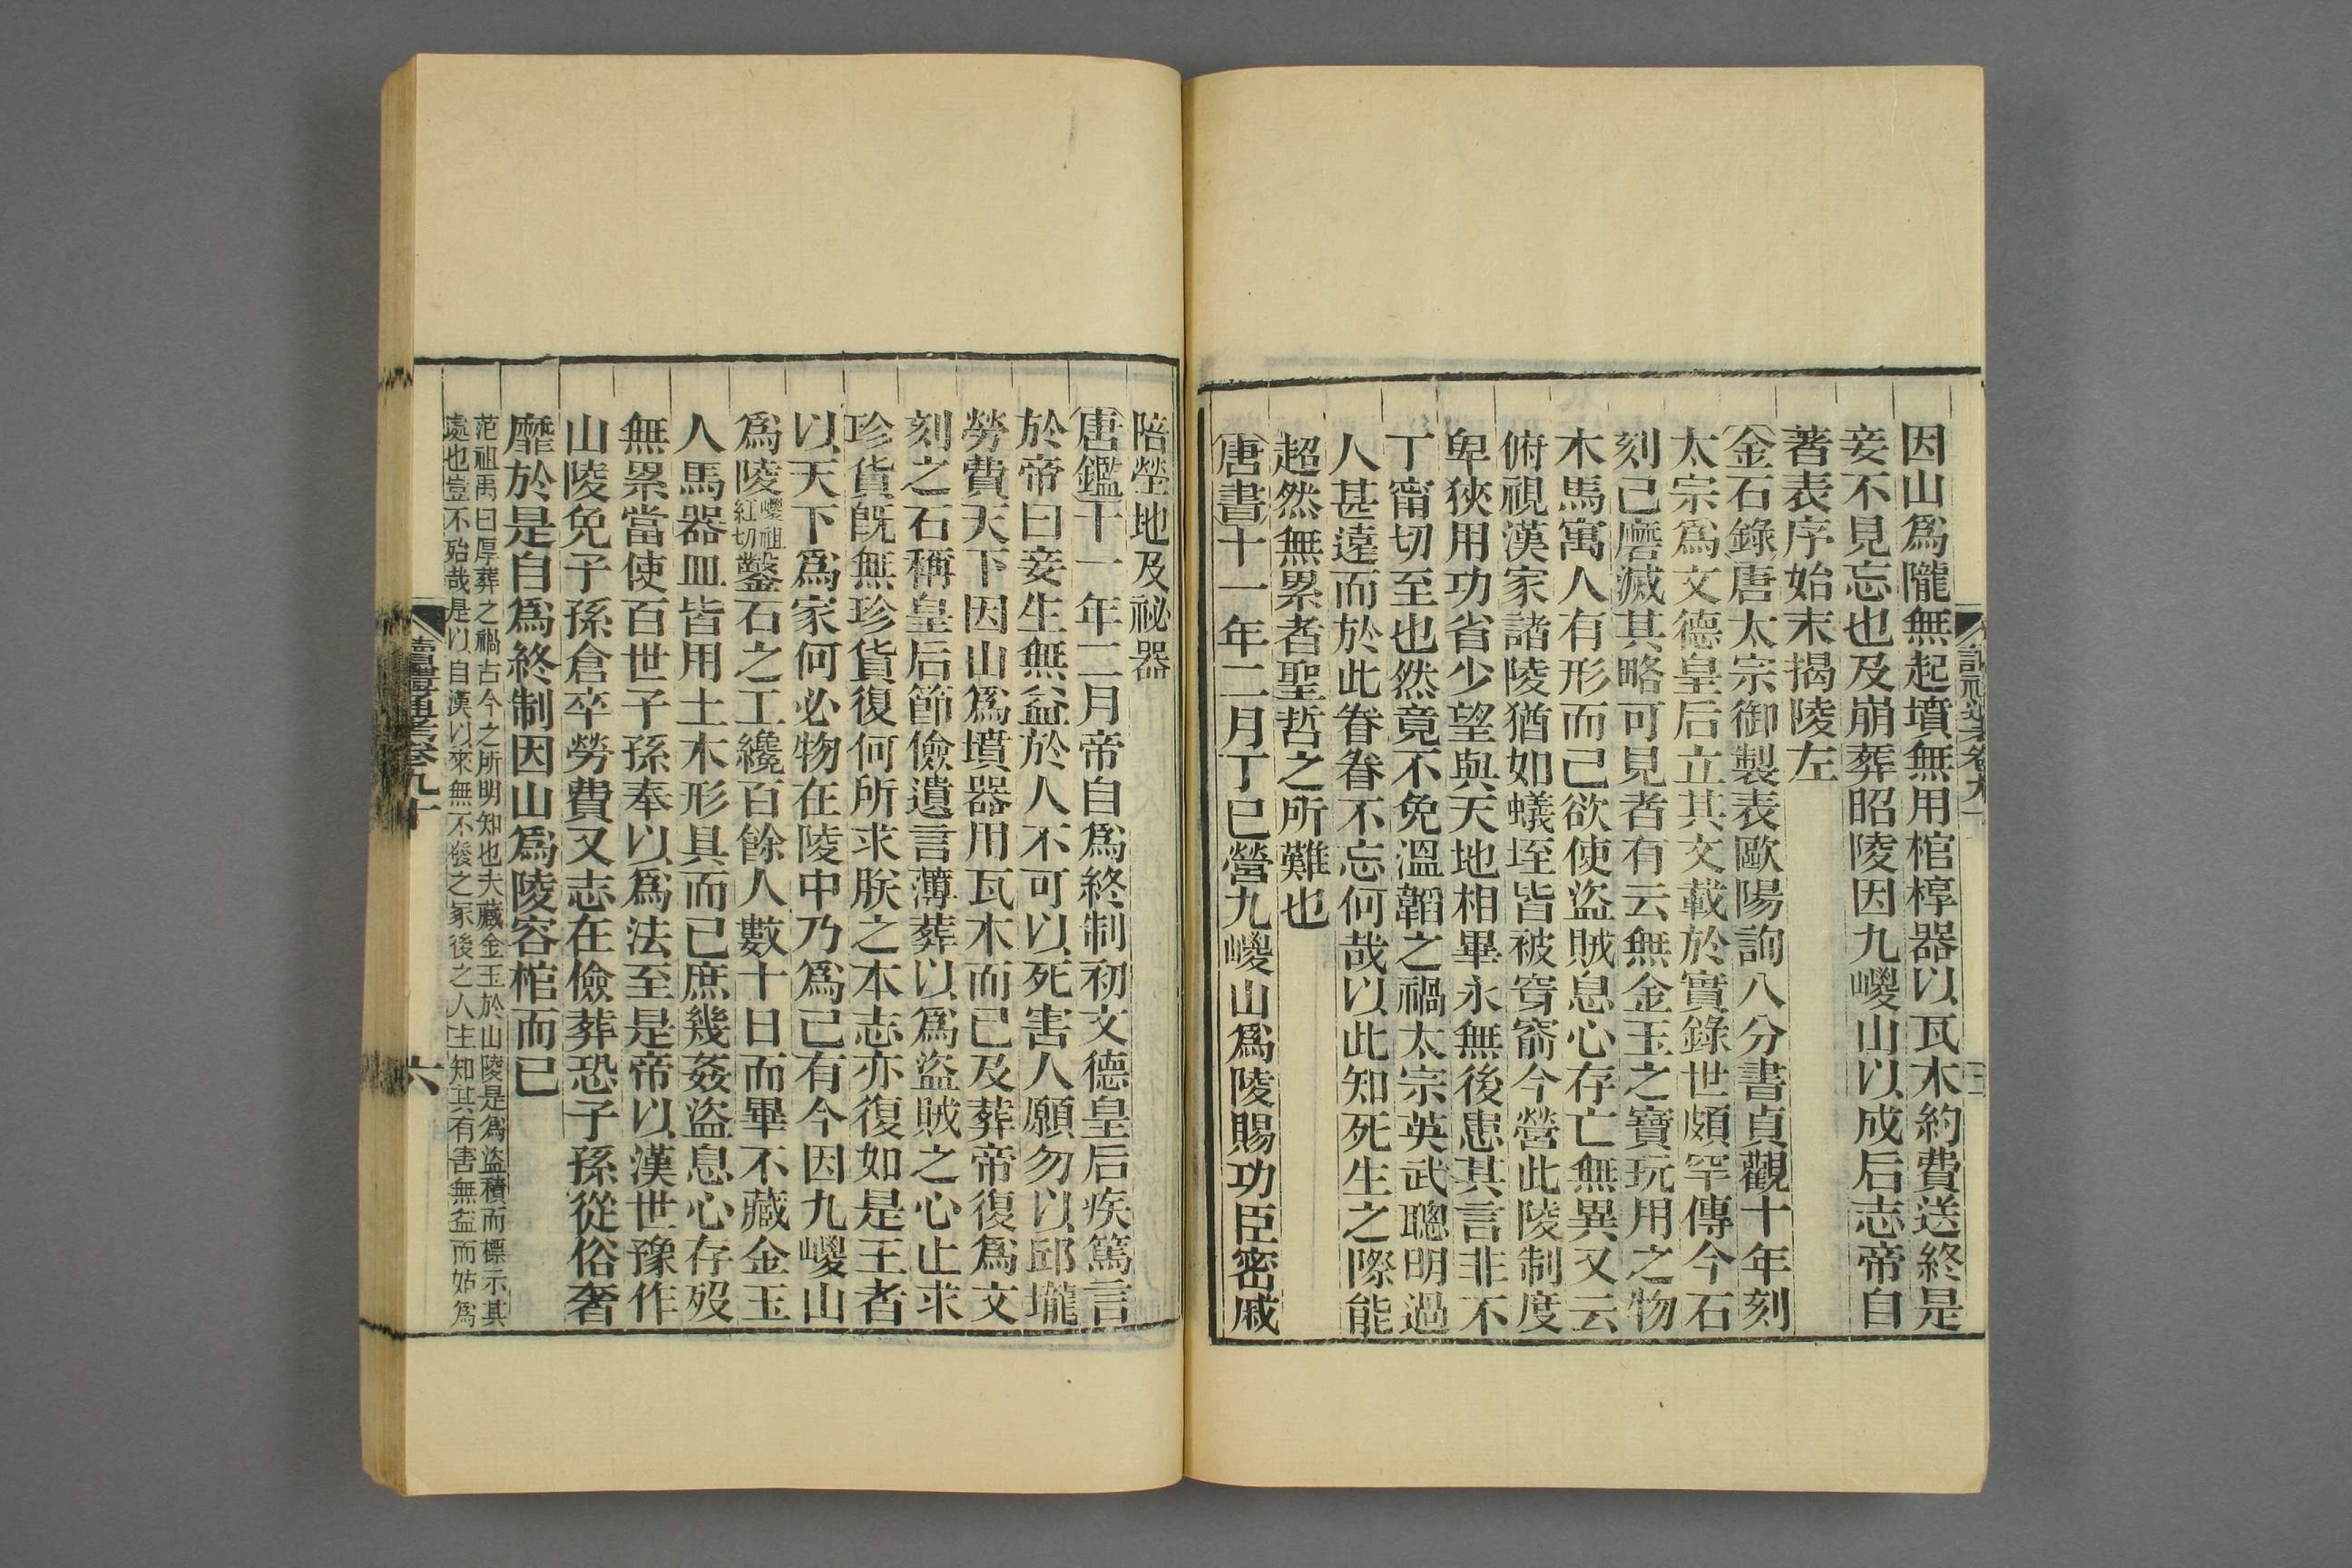 因山爲隴無起墳無用棺椁器以瓦木約費送終是
妾不見忘也及崩葬昭陵因九嵕山以成后志帝自
著表序始末揭陵左
金石錄唐太宗御製表歐陽詢八分書貞觀十年刻
太宗爲文德皇后立其文載於實錄世頗罕傳今石
刻已磨滅其略可見者有云無金玉之寶玩用之物
木馬寓人有形而已欲使盜賊息心存亡無異又云
俯視漢家諸陵猶如蟻垤皆被穿窬今營此陵制度
卑狹用功省少望與天地相畢永無後患其言非不
丁甯切至也然竟不免溫韜之禍太宗英武聰明過
人甚遠而於此眷眷不忘何哉以此知死生之際能
超然無累者聖哲之所難也
唐書十一年二月丁巳營九嵕山爲陵賜功臣密戚
陪塋地及祕器
唐鑑十一年二月帝自爲終制初文德皇后疾篤言
於帝曰妾生無益於人不可以死害人願勿以邱壠
勞費天下因山爲墳器用瓦木而已及葬帝復爲文
刻之石稱皇后節儉遺言薄葬以爲盜賊之心止求
珍貨旣無珍貨復何所求朕之本志亦復如是王者
以天下爲家何必物在陵中乃爲已有今因九嵕山
爲陵嵕祖紅切鑿石之工纔百餘人數十日而畢不藏金玉
人馬器皿皆用土木形具而已庶幾姦盜息心存歿
無累當使百世子孫奉以爲法至是帝以漢世豫作
山陵免子孫倉卒勞費又志在儉葬恐子孫從俗奢
靡於是自爲終制因山爲陵容棺而已
范祖禹曰厚葬之禍古今之所明知也夫藏金玉於山陵是爲盜積而標示其
處也豈不殆哉是以自漢以來無不發之冢後之人主知其有害無益而姑爲
六